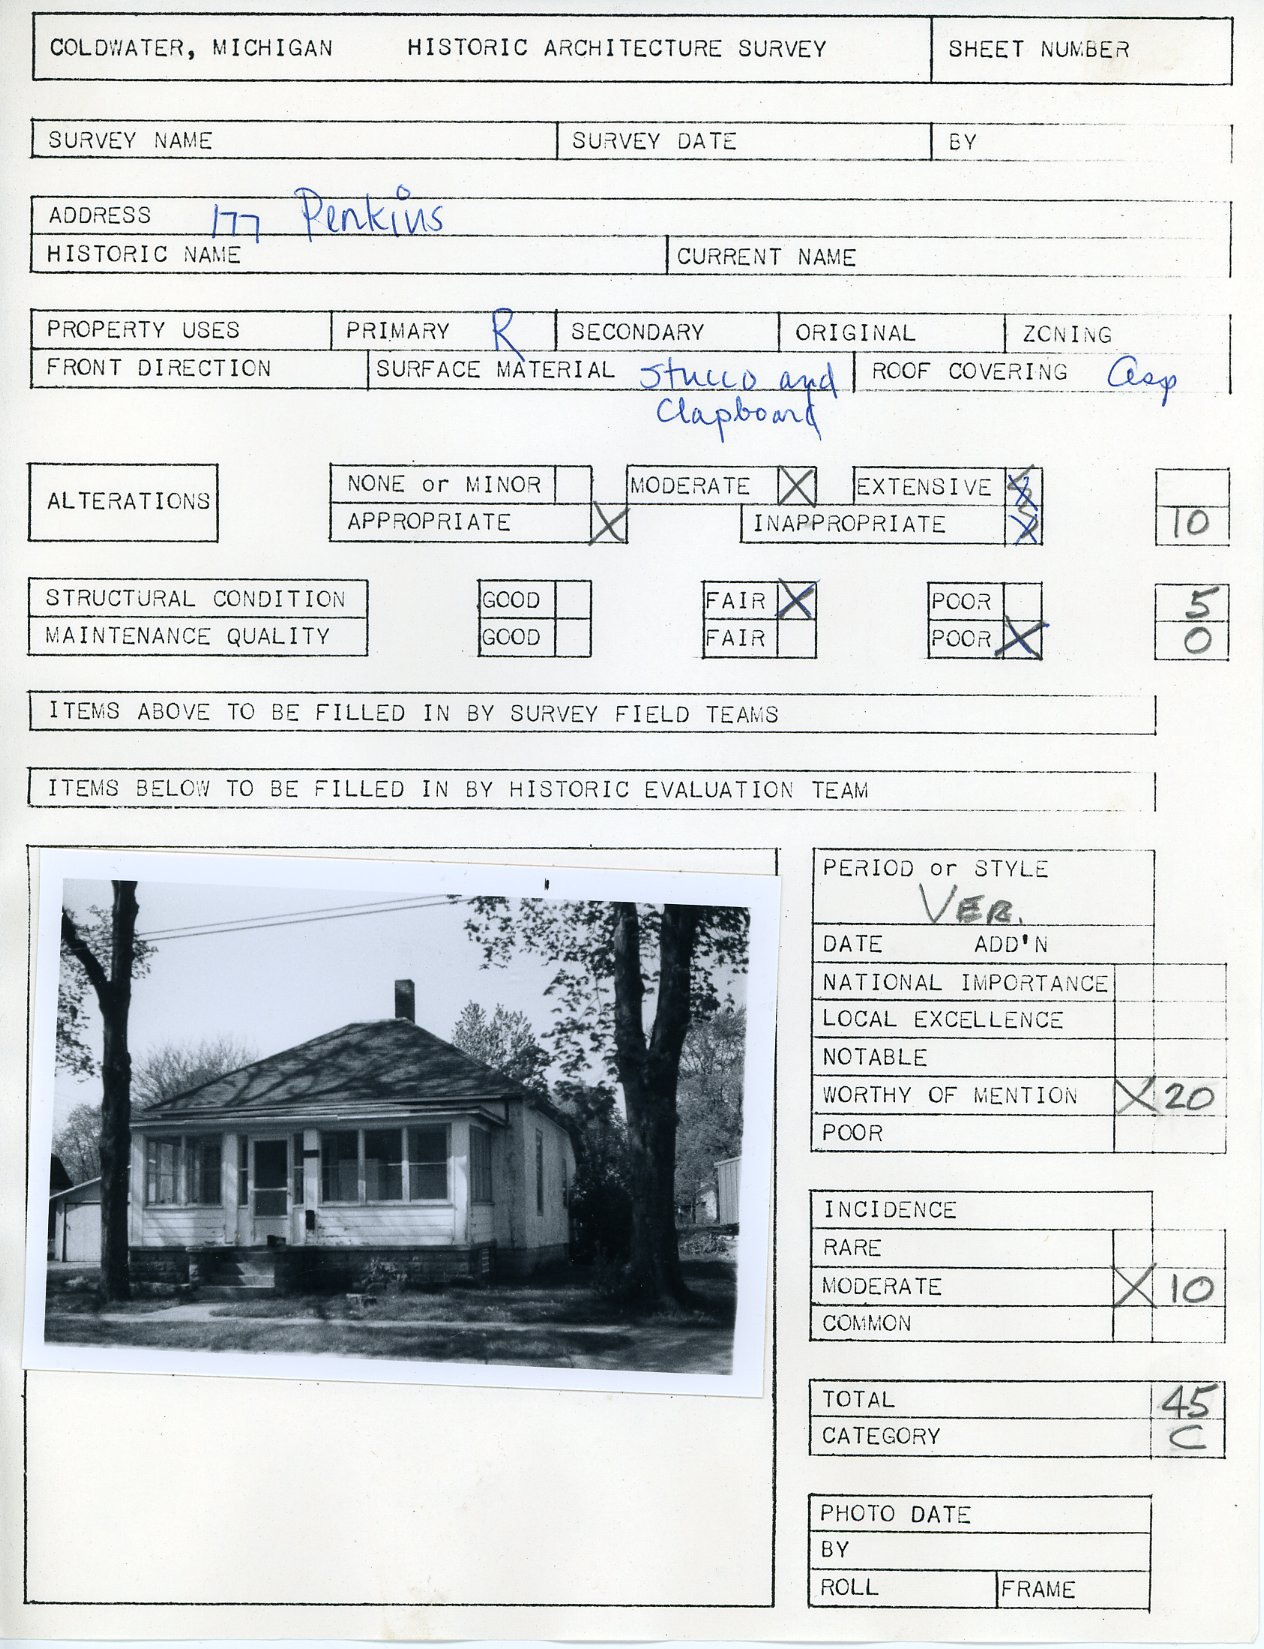 COLDWATER, MICHIGAN HISTORIC ARCHITECTURE SURVEY SHEET NUMBER
SURVEY NAME SURVEY DATE BY
ADDRESS 177 Perkins
HISTORIC NAME CURRENT NAME
PROPERTY USES PRIMARY R SECONDARY ORIGINAL ZONING
FRONT DIRECTION SURFACE MATERIAL Stucco and ROOF COVERING Asp
Clapboard
ALTERATIONS
NONE or MINOR MODERATE X EXTENSIVE
APPROPRIATE X INAPPROPRIATE 10
STRUCTURAL CONDITION GOOD FAIR X POOR 5
MAINTENANCE QUALITY GOOD FAIR POOR X 0
ITEMS ABOVE TO BE FILLED IN BY SURVEY FIELD TEAMS
ITEMS BELOW TO BE FILLED IN BY HISTORIC EVALUATION TEAM
PERIOD or STYLE
VER.
DATE ADD'N
NATIONAL IMPORTANCE
LOCAL EXCELLENCE
NOTABLE
WORTHY OF MENTION X 20
POOR
INCIDENCE
RARE
MODERATE X 10
COMMON
TOTAL 45
CATEGORY C
PHOTO DATE
BY
ROLL FRAME